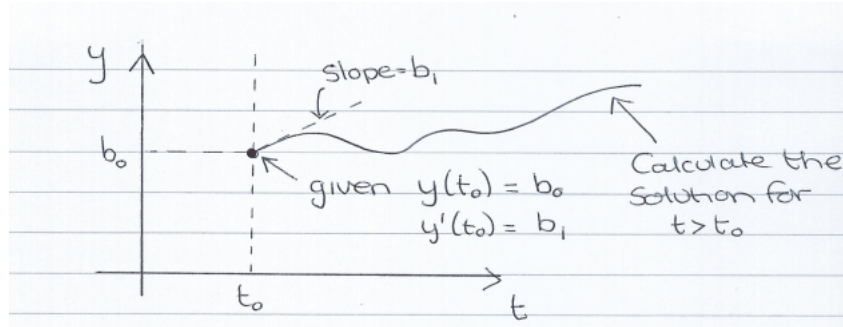 y
slope=b₁
b₀
given y(t₀) = b₀
y'(t₀) = b₁
Calculate the
solution for
t>t₀
t₀
t